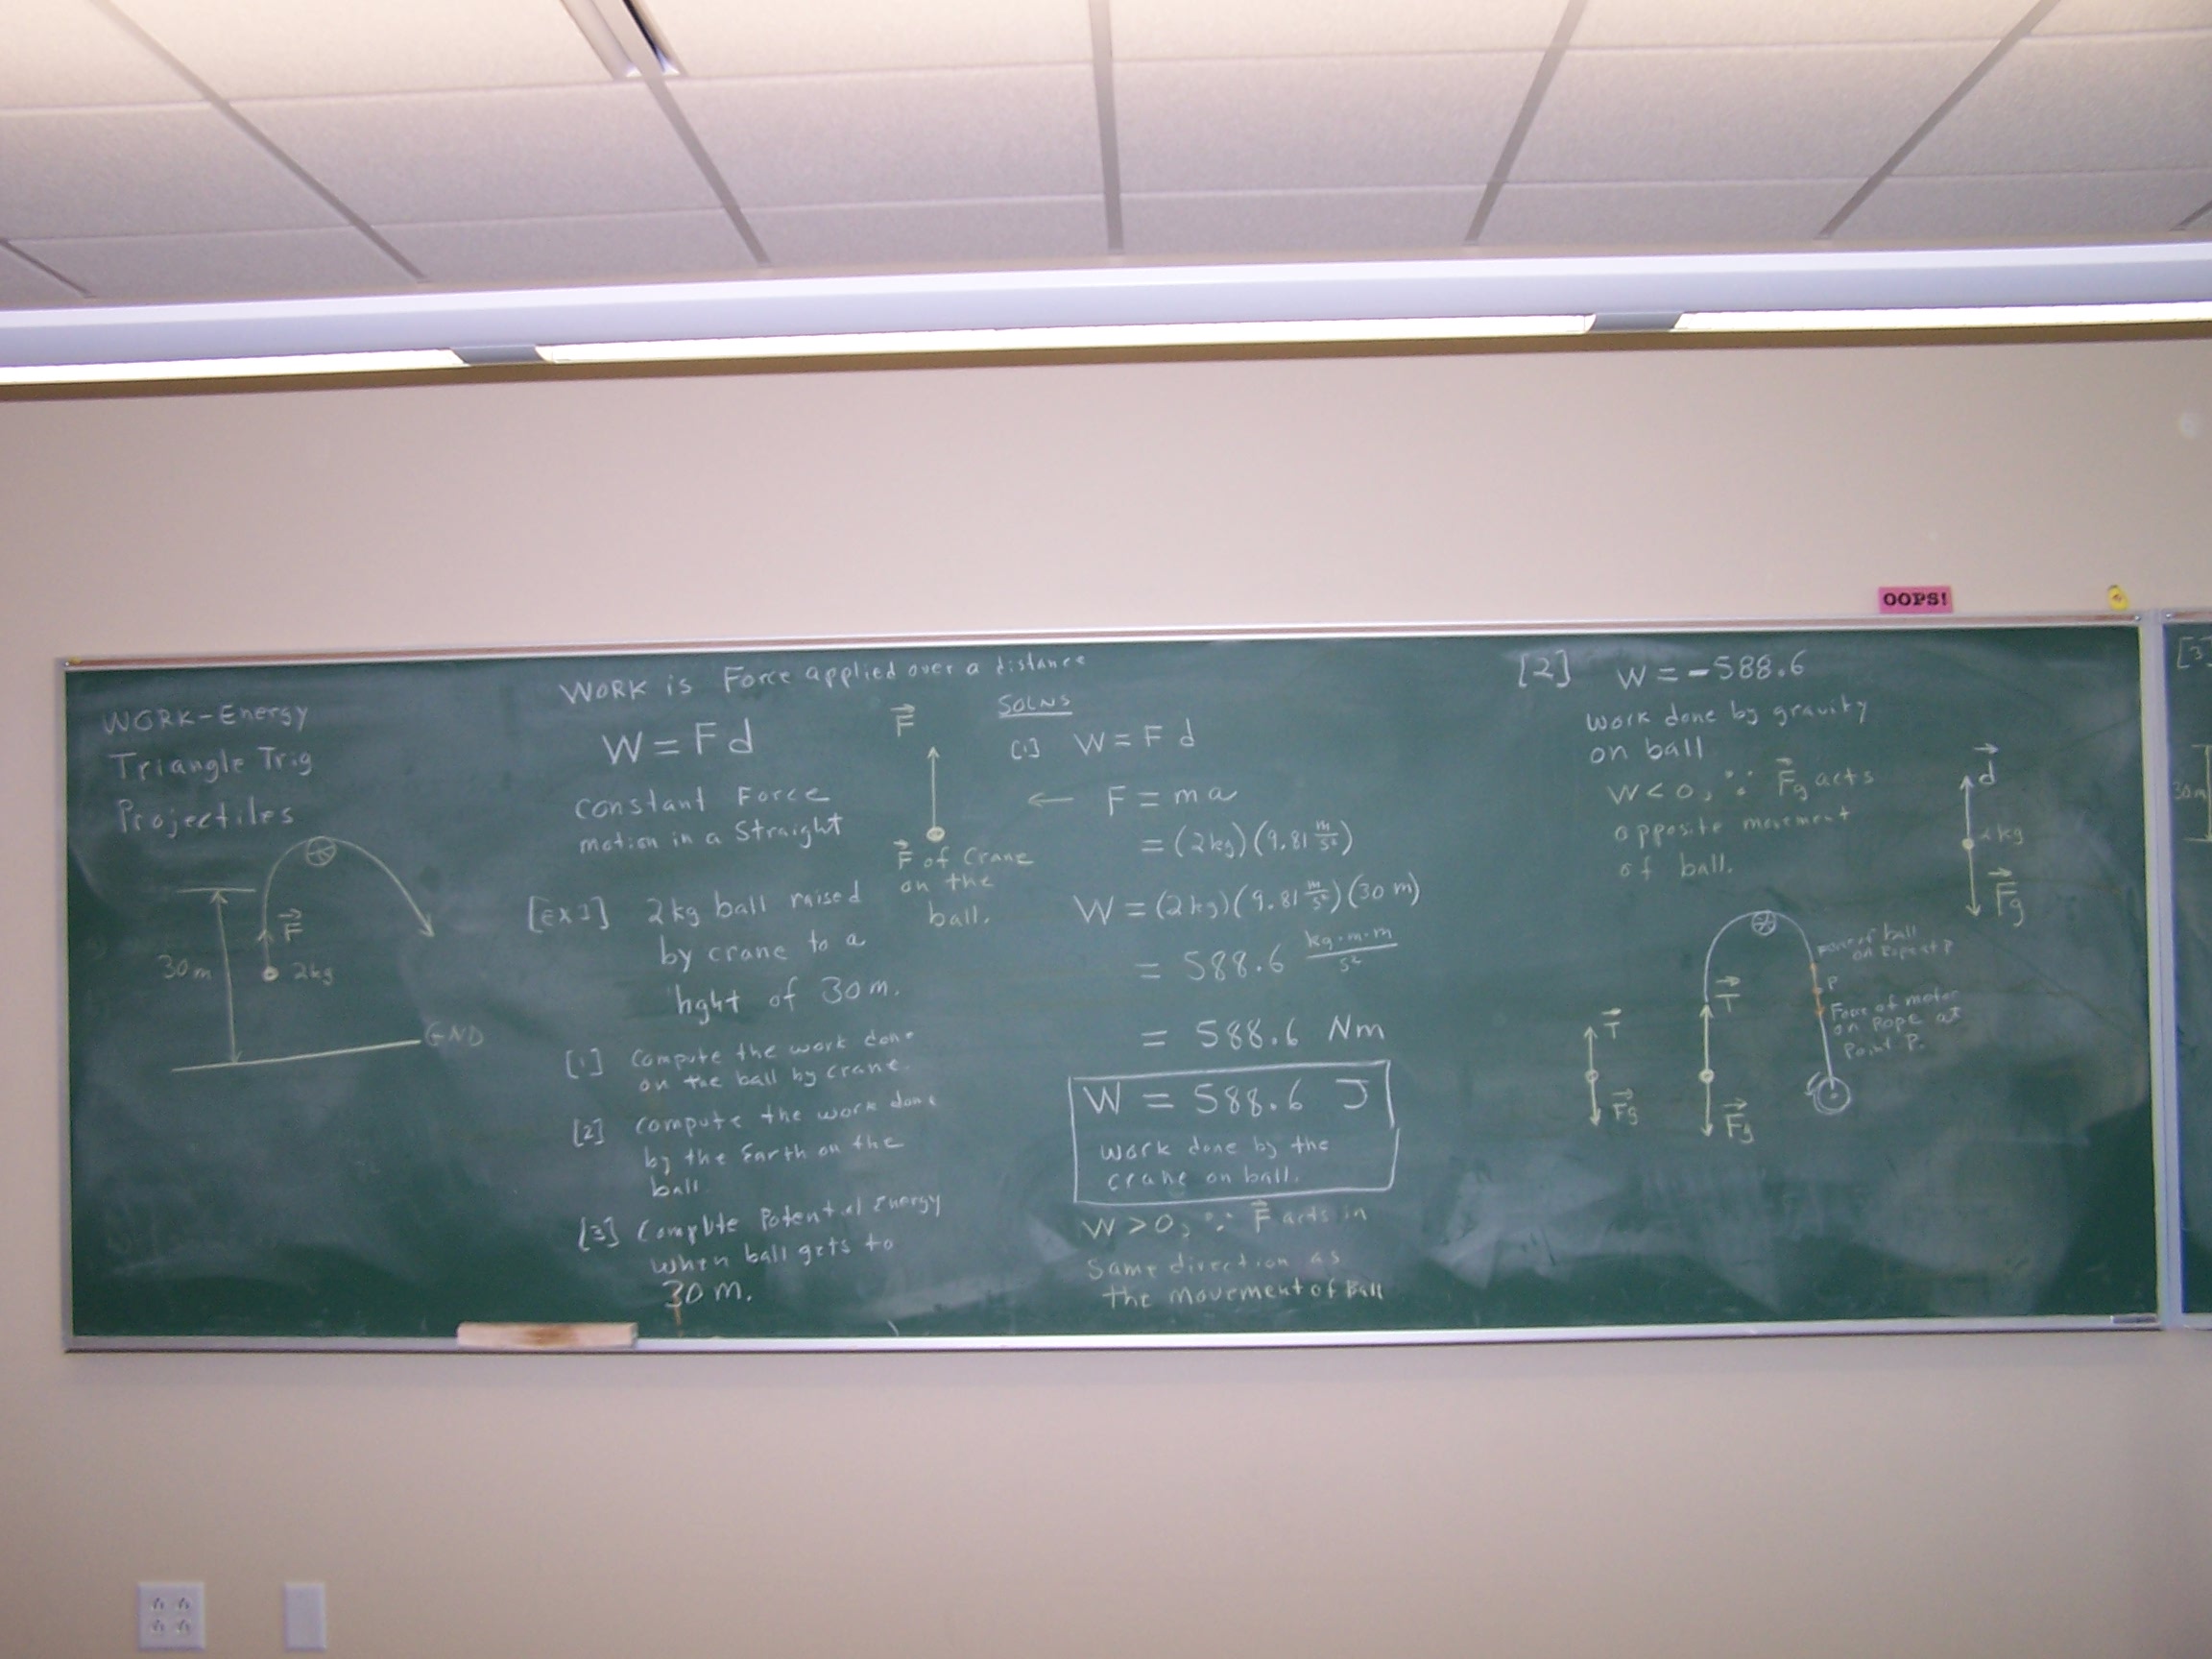 OOPS!
WORK-Energy
Triangle Trig
Projectiles
F
30m
2kg
GND
WORK is Force applied over a distance
W = Fd
constant Force
motion in a Straight
[EX1] 2kg ball raised
by crane to a
hght of 30m.
[1] Compute the work done
on the ball by crane.
[2] compute the work done
by the Earth on the
ball
[3] Compute Potential Energy
when ball gets to
30m.
F
F of Crane
on the
ball.
SOLNS
[1] W = F d
← F = ma
= (2kg)(9.81 m/s²)
W = (2kg)(9.81 m/s²)(30 m)
= 588.6 kg·m·m/s²
= 588.6 Nm
W = 588.6 J
work done by the
crane on ball.
W > 0, ∵ F acts in
Same direction as
the movement of Ball
[2] W = -588.6
work done by gravity
on ball
W < 0, ∵ Fg acts
opposite movement
of ball.
d
2kg
Fg
T
Fg
T
Fg
Force of ball
on Rope at P
P
Force of motor
on Rope at
Point P.
[3
30m